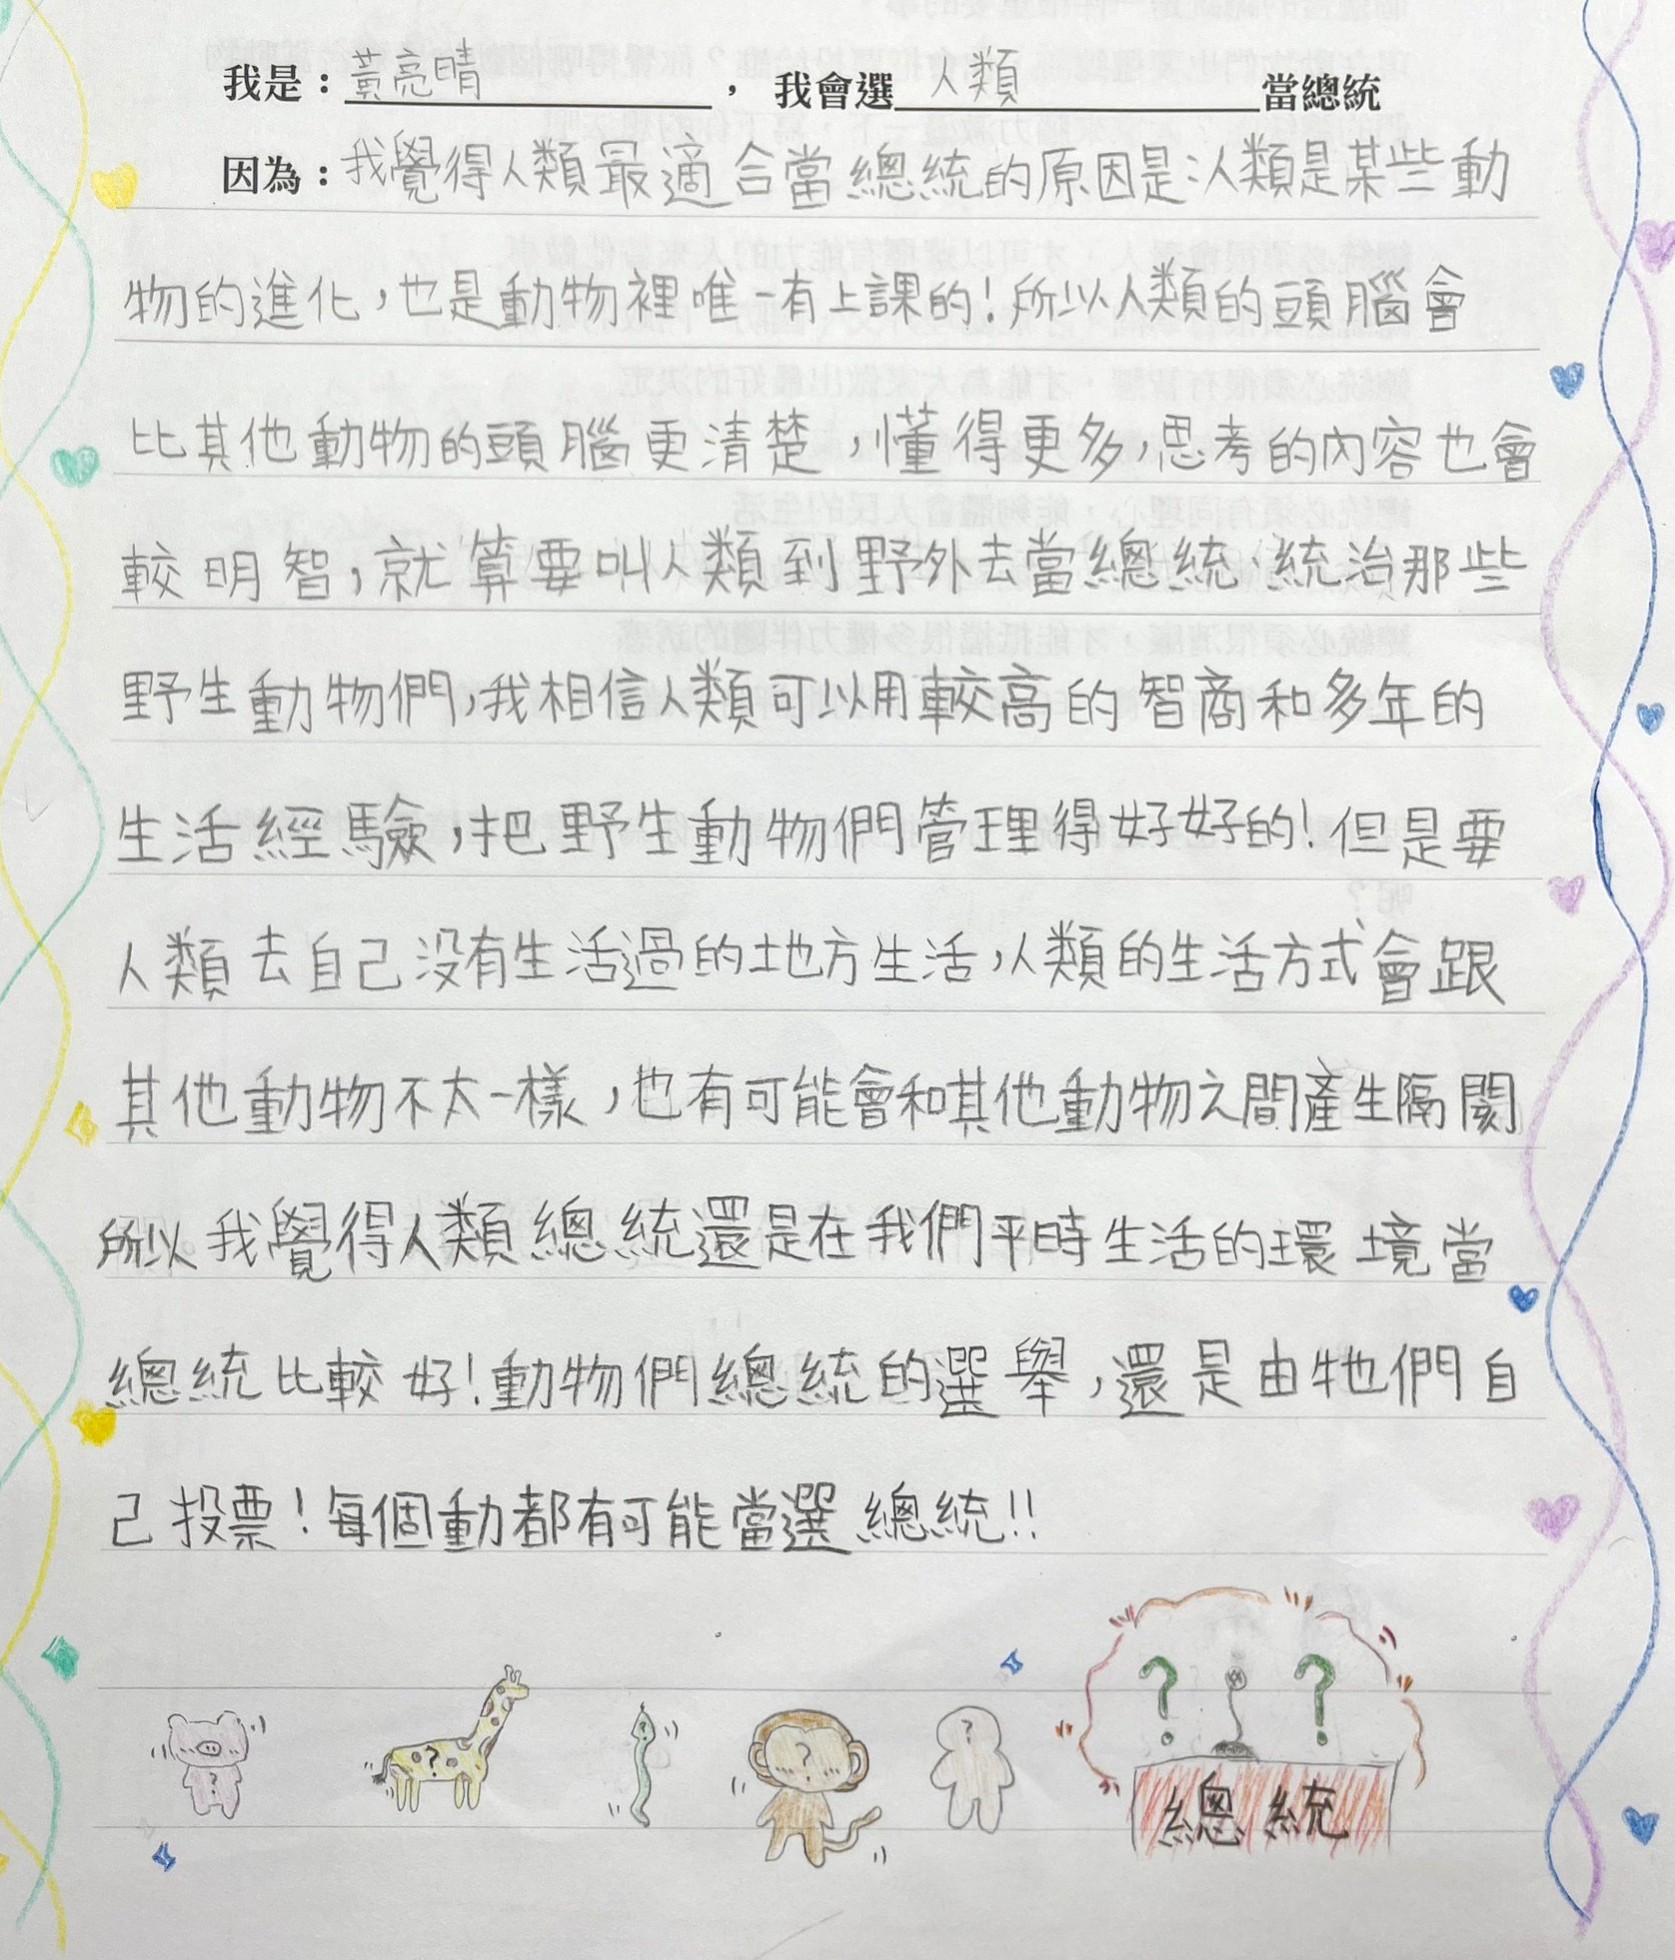 我是：黃亮晴，我會選人類當總統
因為：我覺得人類最適合當總統的原因是：人類是某些動
物的進化，也是動物裡唯一有上課的！所以人類的頭腦會
比其他動物的頭腦更清楚，懂得更多，思考的內容也會
較明智，就算要叫人類到野外去當總統、統治那些
野生動物們，我相信人類可以用較高的智商和多年的
生活經驗，把野生動物們管理得好好的！但是要
人類去自己沒有生活過的地方生活，人類的生活方式會跟
其他動物不太一樣，也有可能會和其他動物之間產生隔閡
所以我覺得人類總統還是在我們平時生活的環境當
總統比較好！動物們總統的選舉，還是由牠們自
己投票！每個動都有可能當選總統!!
? ? ? ? ? ? ?
總統